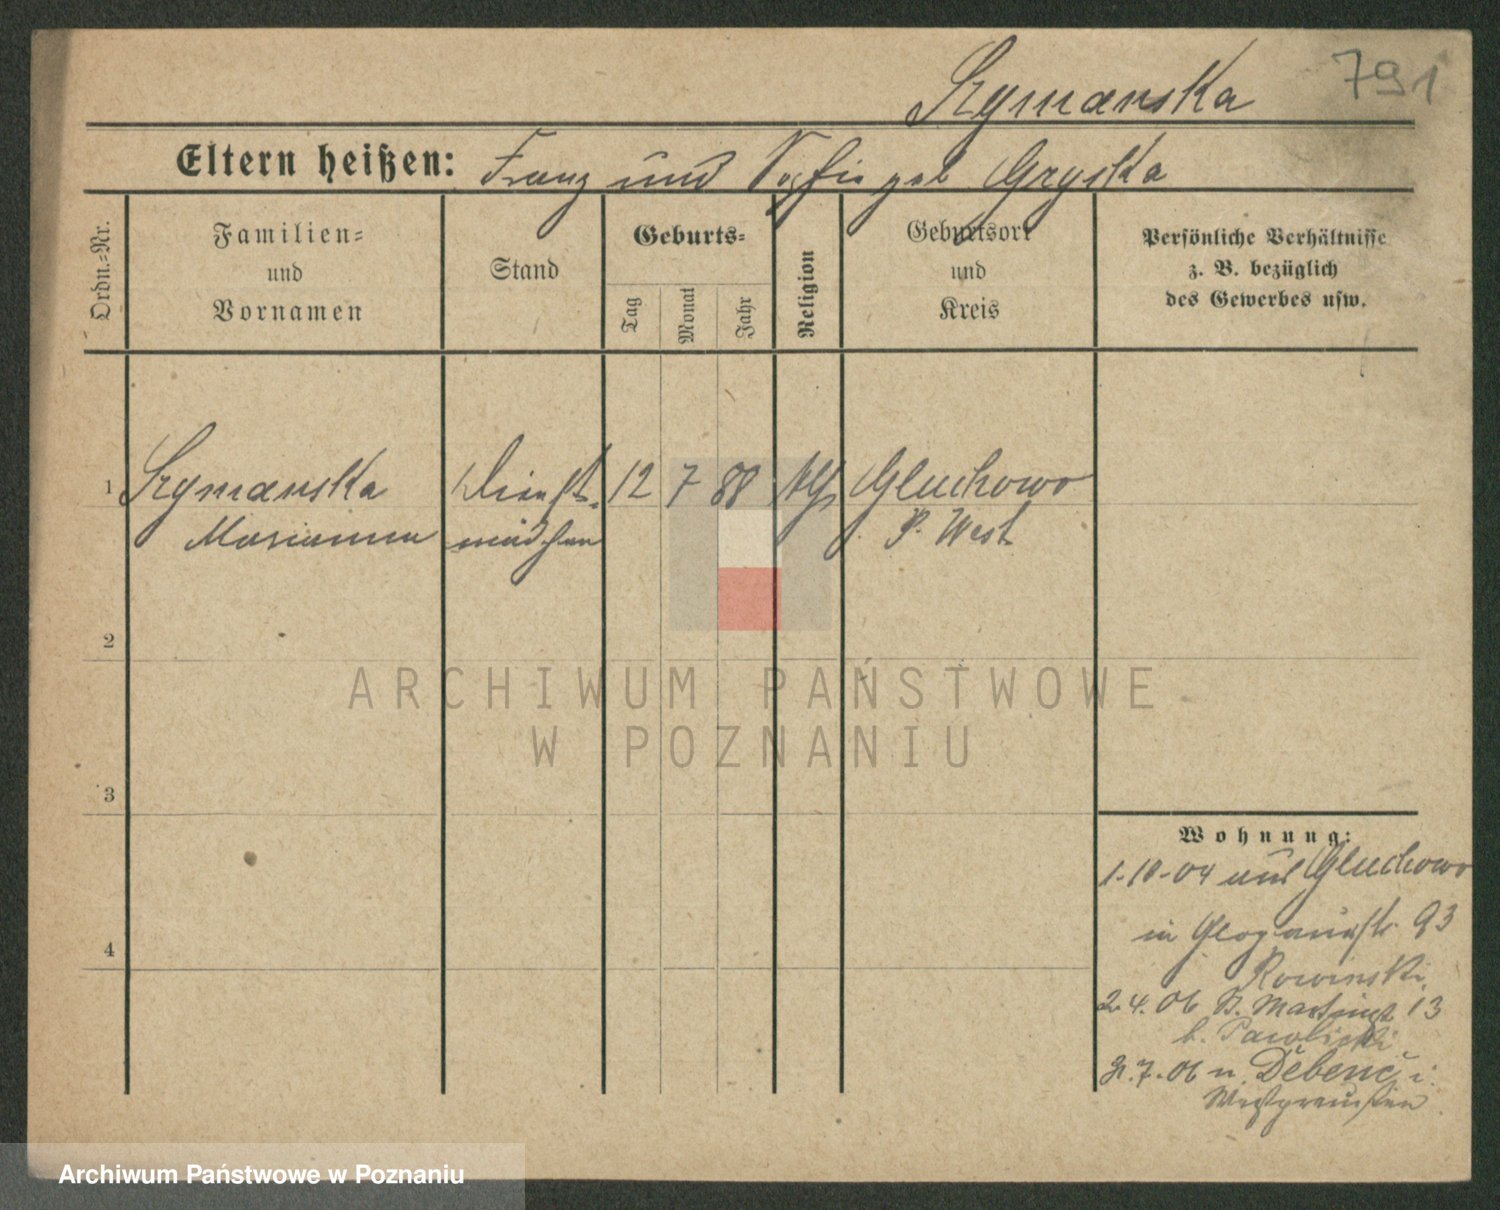 791
Szymanska
Eltern heißen: Franz und Sofie geb Gryska
Ordn.-Nr.
Familien-
und
Vornamen
Stand
Geburts-
Tag
Monat
Jahr
Religion
Geburtsort
und
Kreis
Persönliche Verhältnisse
z. B. bezüglich
des Gewerbes usw.
1 Szymanska Dienst- 12 7 88 Gluchowo
Marianna mädchen P. West
2
3
4
Wohnung:
1-10-04 aus Gluchowo
in Glogauerstr. 93
Rowinski
2.4.06 St. Martinstr 13
b. Pawlicki
31.7.06 n. Debenc i.
Westpreußen
ARCHIWUM PAŃSTWOWE
W POZNANIU
Archiwum Państwowe w Poznaniu